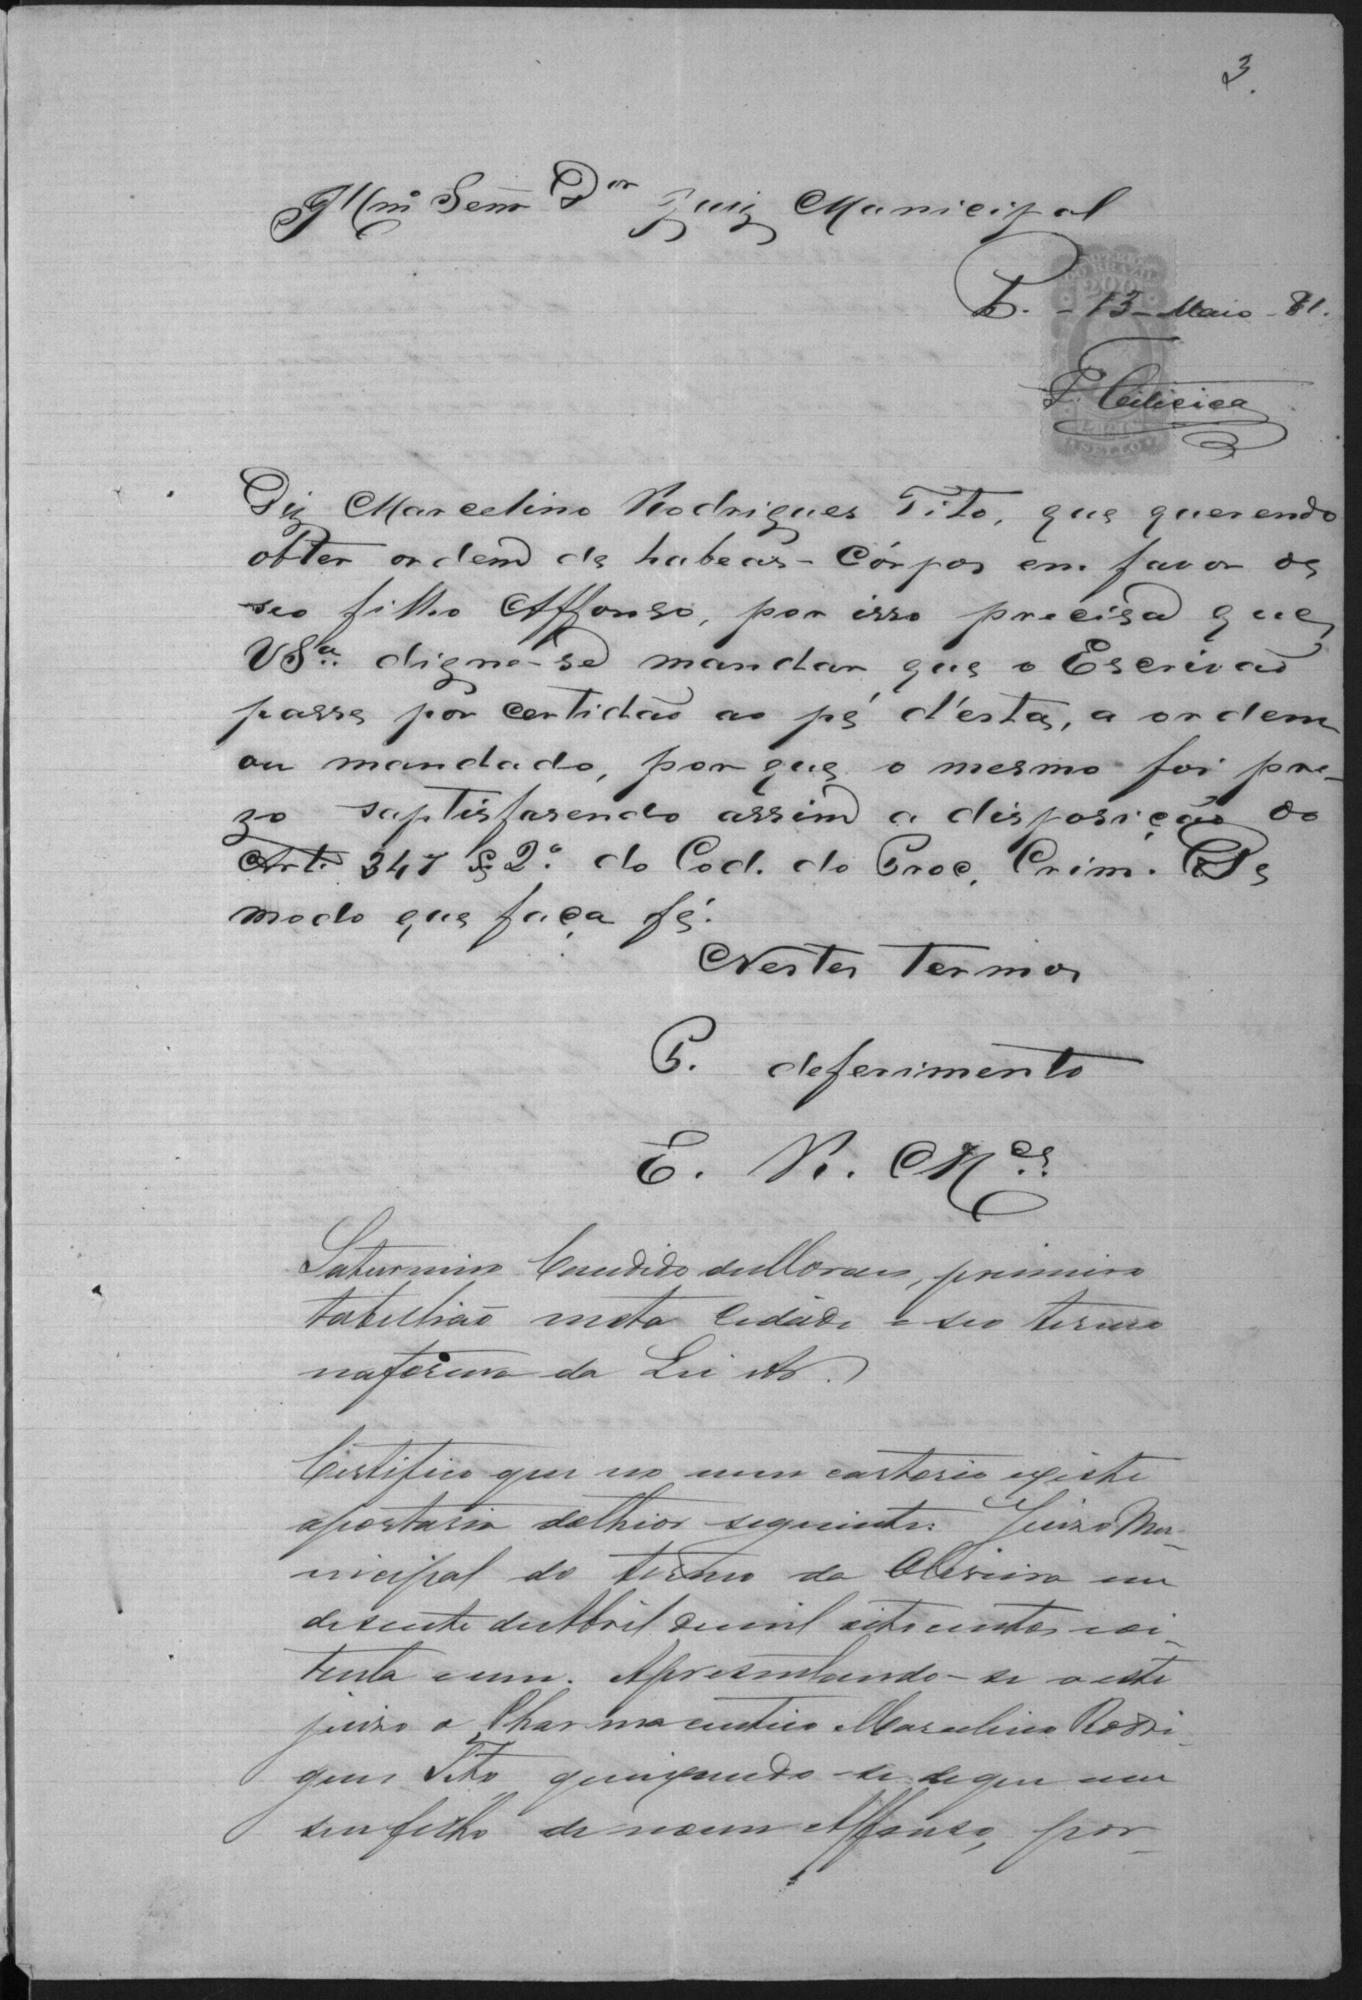 3.
Illmº Senr Dor Juiz Municipal
P. - 13 - Maio - 81.
Diz Marcelino Rodrigues Tito, que querendo
obter ordem de habeas-Córpos em favor de
seo filho Affonso, por isso precisa que
VSª. digne-se mandar que o Escrivão
passe por certidão ao pé d'ésta, a ordem
ou mandado, porque o mesmo foi pre-
zo saptisfasendo assim a disposição do
Art. 347 § 2º. do Cod. do Proc. Crim. De
modo que faça fé.
Nestes Termos
P. deferimento
E. R. Mces.
Saturnino Candido de Moraes, primeiro
tabellião nesta Cidade e seo termo
na forma da Lei
Certifico que no meu cartorio existe
a portaria do theor seguinte: Juizo Mu-
nicipal do termo da Oliveira em
desente de Abril de mil oitocentos e oi-
tenta e um. Apresentando-se a este
juizo o Pharmaceutico Marcelino Rodri-
gues Tito, queixando-se de que um
seu filho de nome Affonso, por-